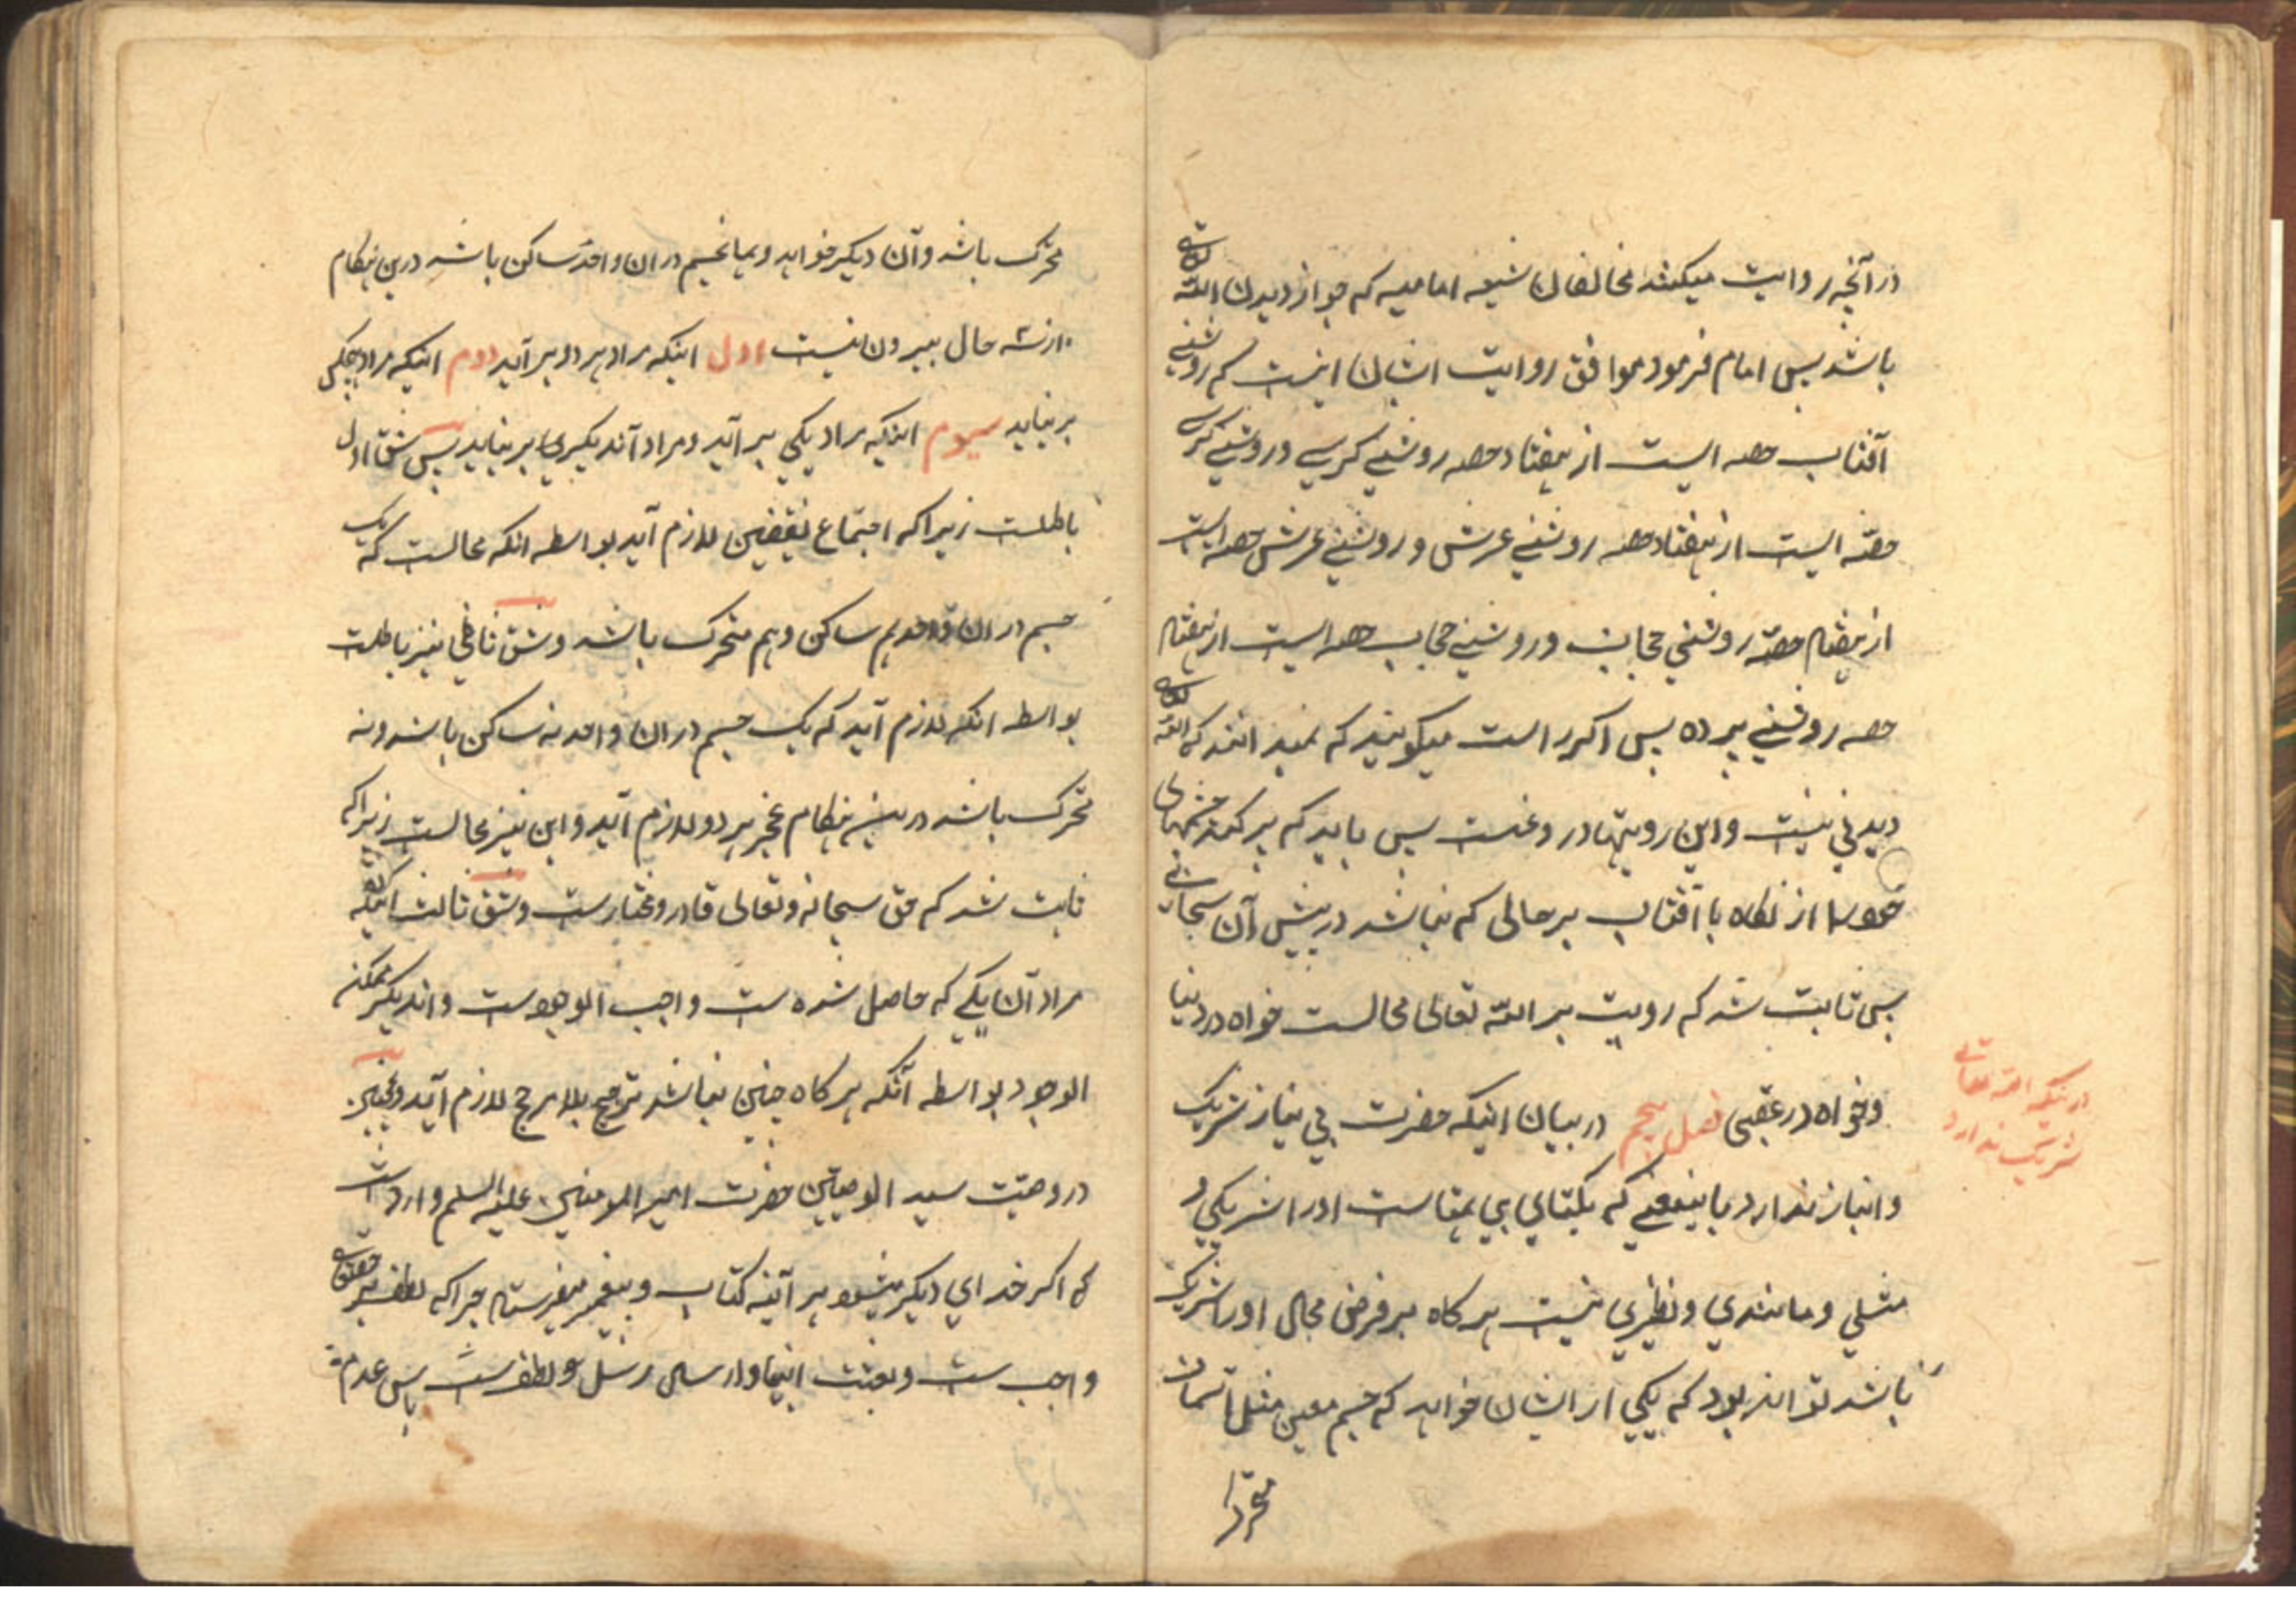 در آنچه روایت میکنند مخالفان شیعه امامیه که جواز دیدن الله تعالی
باشد پس امام فرمود موافق روایت ایشان اینست که روشنی
آفتاب حصه ایست از هفتاد حصه روشنی کرسی و روشنی کرسی
حصّه ایست از هفتاد حصه روشنی عرش و روشنی عرش حصه ایست
از هفتاد حصّه روشنی حجاب و روشنی حجاب حصه ایست از هفتاد
حصه روشنی پرده پس اکر راست میکویند که نمیدانند که الله تعالی
دیدنی نیست و این رویتها دروغست پس باید که پر کنند چشمهای
خود را از نکاه با آفتاب بر حالی که نباشد در پیش آن سحابی
پس ثابت شد که رویت بر الله تعالی محالست خواه در دنیا
و خواه در عقبی فصل پنجم در بیان اینکه حضرت بی نیاز شریک
در بیان اینکه الله تعالی
شریک ندارد
و انباز ندارد باینمعنی که یکتای بی همتاست او را شریکی و
مثلی و مانندی و نظیری نیست هرکاه بر فرض محال او را شریک
باشد تواند بود که یکی از ایشان خواهد که جسم معین مثل آسمان
متحرک
متحرک باشد و آن دیکر خواهد و همان جسم در ان واحد ساکن باشد درین هنکام
از سه حال بیرون نیست اول اینکه مراد هر دو بر آید دوم اینکه مراد هیچکی
بر نیاید سیوم اینکه مراد یکی بر آید و مراد آن دیکری بر نیاید پس شق اول
باطلست زیرا که اجتماع نقیضین لازم آید بواسطه انکه محالست که یک
جسم در ان واحد هم ساکن و هم متحرک باشد و شق ثانی نیز باطلست
بواسطه انکه لازم آید که یک جسم در ان واحد نه ساکن باشد و نه
متحرک باشد درین هنکام عجز هر دو لازم آید و این نیز محالست زیرا که
ثابت شد که حق سبحانه و تعالی قادر و مختارست و شق ثالث انکه
مراد آن یکی که حاصل شده ست واجب الوجودست و اندیکر ممکن
الوجود بواسطه آنکه هرکاه چنین نباشد ترجیح بلا مرجح لازم آید و همچنین
در وصیّت سید الوصیین حضرت امیر المومنین علیه السلم وارد است
که اکر خدای دیکر میبود هر آینه کتاب و پیغمبر میفرستاد چرا که لطف بر حقتعالی
واجب ست و بعثت انبیا و ارسال رسل و لطف ست پس عدم